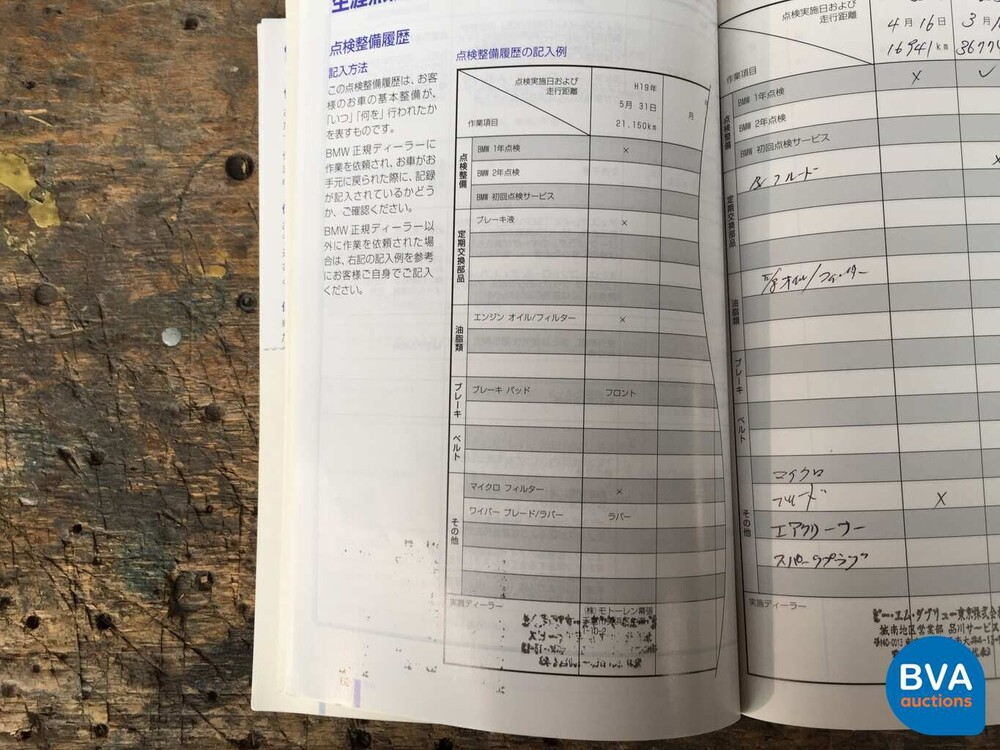 点検整備履歴
記入方法
この点検整備履歴は、お客
様のお車の基本整備が、
「いつ」「何を」行われたか
を表すものです。
BMW正規ディーラーに
作業を依頼され、お車がお
手元に戻られた際に、記録
が記入されているかどう
か、ご確認ください。
BMW正規ディーラー以
外に作業を依頼された場
合は、右記の記入例を参考
にお客様ご自身でご記入
ください。
点検整備履歴の記入例
点検実施日および
走行距離
作業項目
H19年
5月 31日
21,150km
月
点検整備
BMW 1年点検 ×
BMW 2年点検
BMW 初回点検サービス
定期交換部品
ブレーキ液 ×
油脂類
エンジン オイル/フィルター ×
ブレーキ
ブレーキ パッド フロント
ベルト
その他
マイクロ フィルター ×
ワイパー ブレード/ラバー ラバー
実施ディーラー
(株) モトーレン幕張
点検実施日および
走行距離
作業項目
4月16日 3月
16941km
点検整備
BMW 1年点検 ×
BMW 2年点検
BMW 初回点検サービス
定期交換部品
フルード
油脂類
オイル/フィルター
ブレーキ
ベルト
その他
マイクロ
×
エアクリーナー
スパークプラグ
実施ディーラー
ビー・エム・ダブリュー東京株式会
城南地区営業部 品川サービス
BVA
auctions